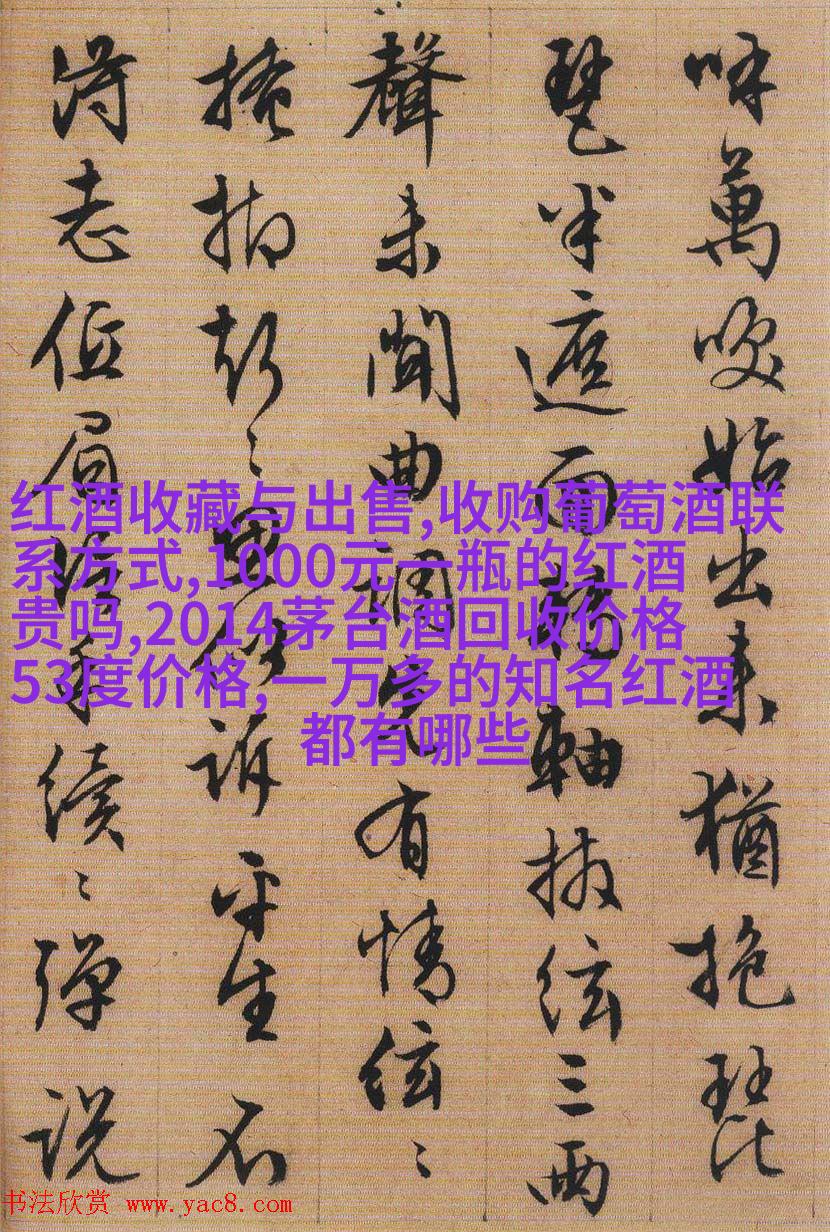 呼萬喚始出来猶抱琵
琶半遮面轉軸撥絃三兩
聲未聞曲調先有情絃〻
掩抑聲〻思似訴平生不
得志低眉信手續〻彈説
红酒收藏与出售,收购葡萄酒联
系方式,1000元一瓶的红酒
贵吗,2014茅台酒回收价格
53度价格,一万多的知名红酒
都有哪些
书法欣赏 www.yac8.com